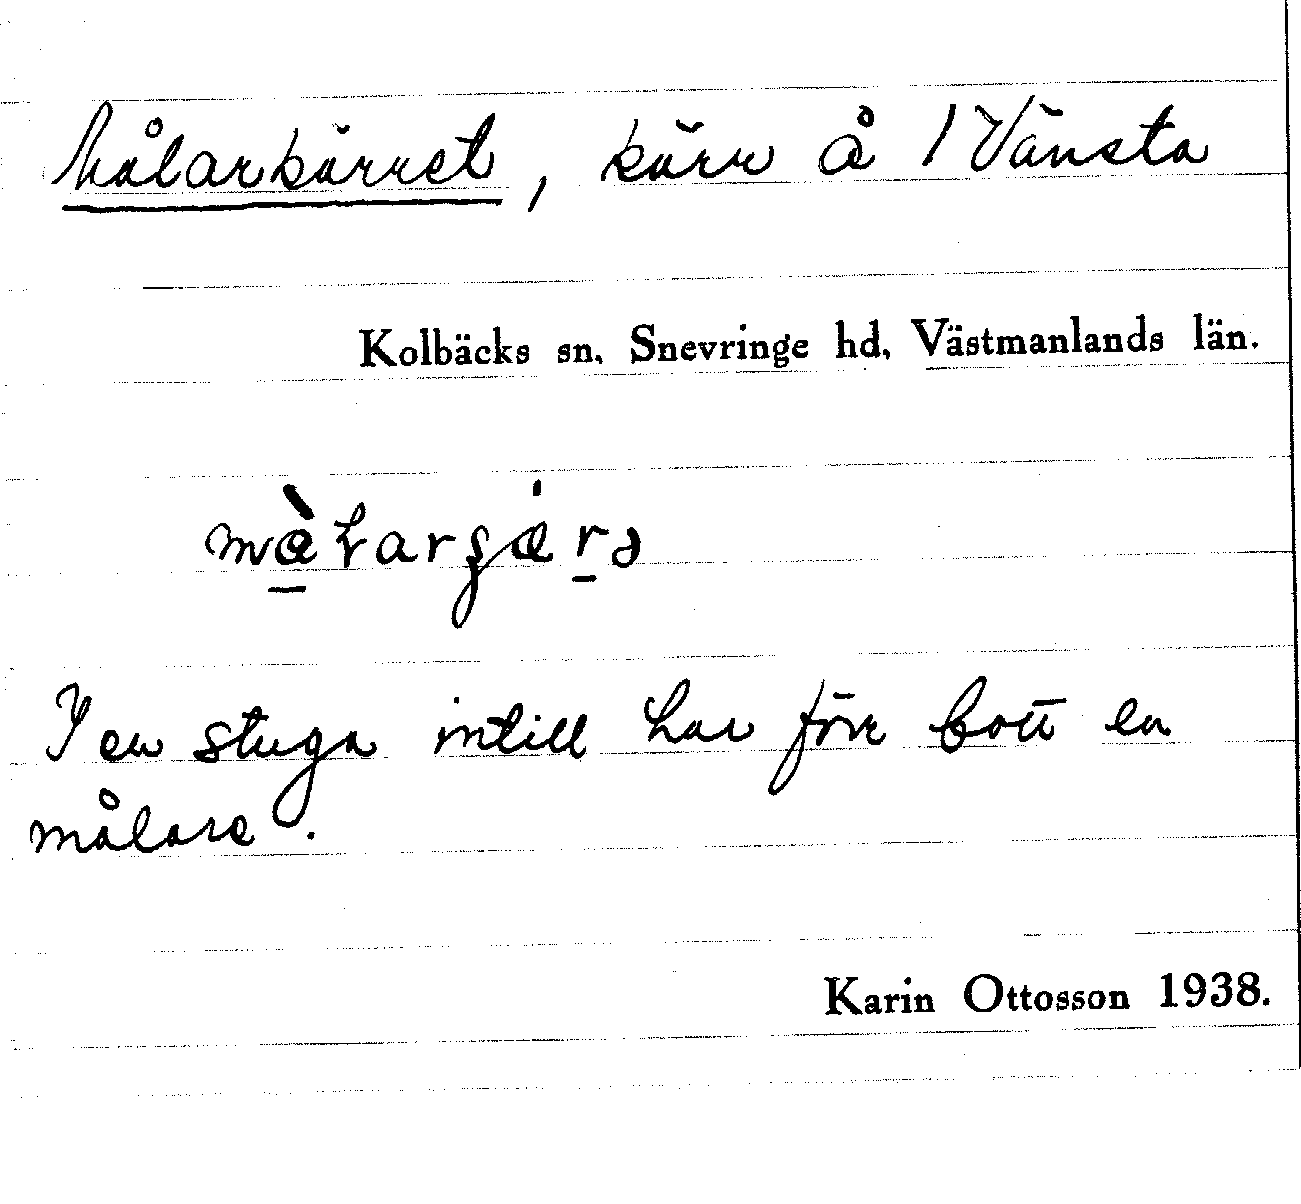 Målarkärret, kärr å 1 Vänsta
Kolbäcks sn, Snevringe hd, Västmanlands län.
I en stuga intill har förr bott en
målare.
Karin Ottosson 1938.